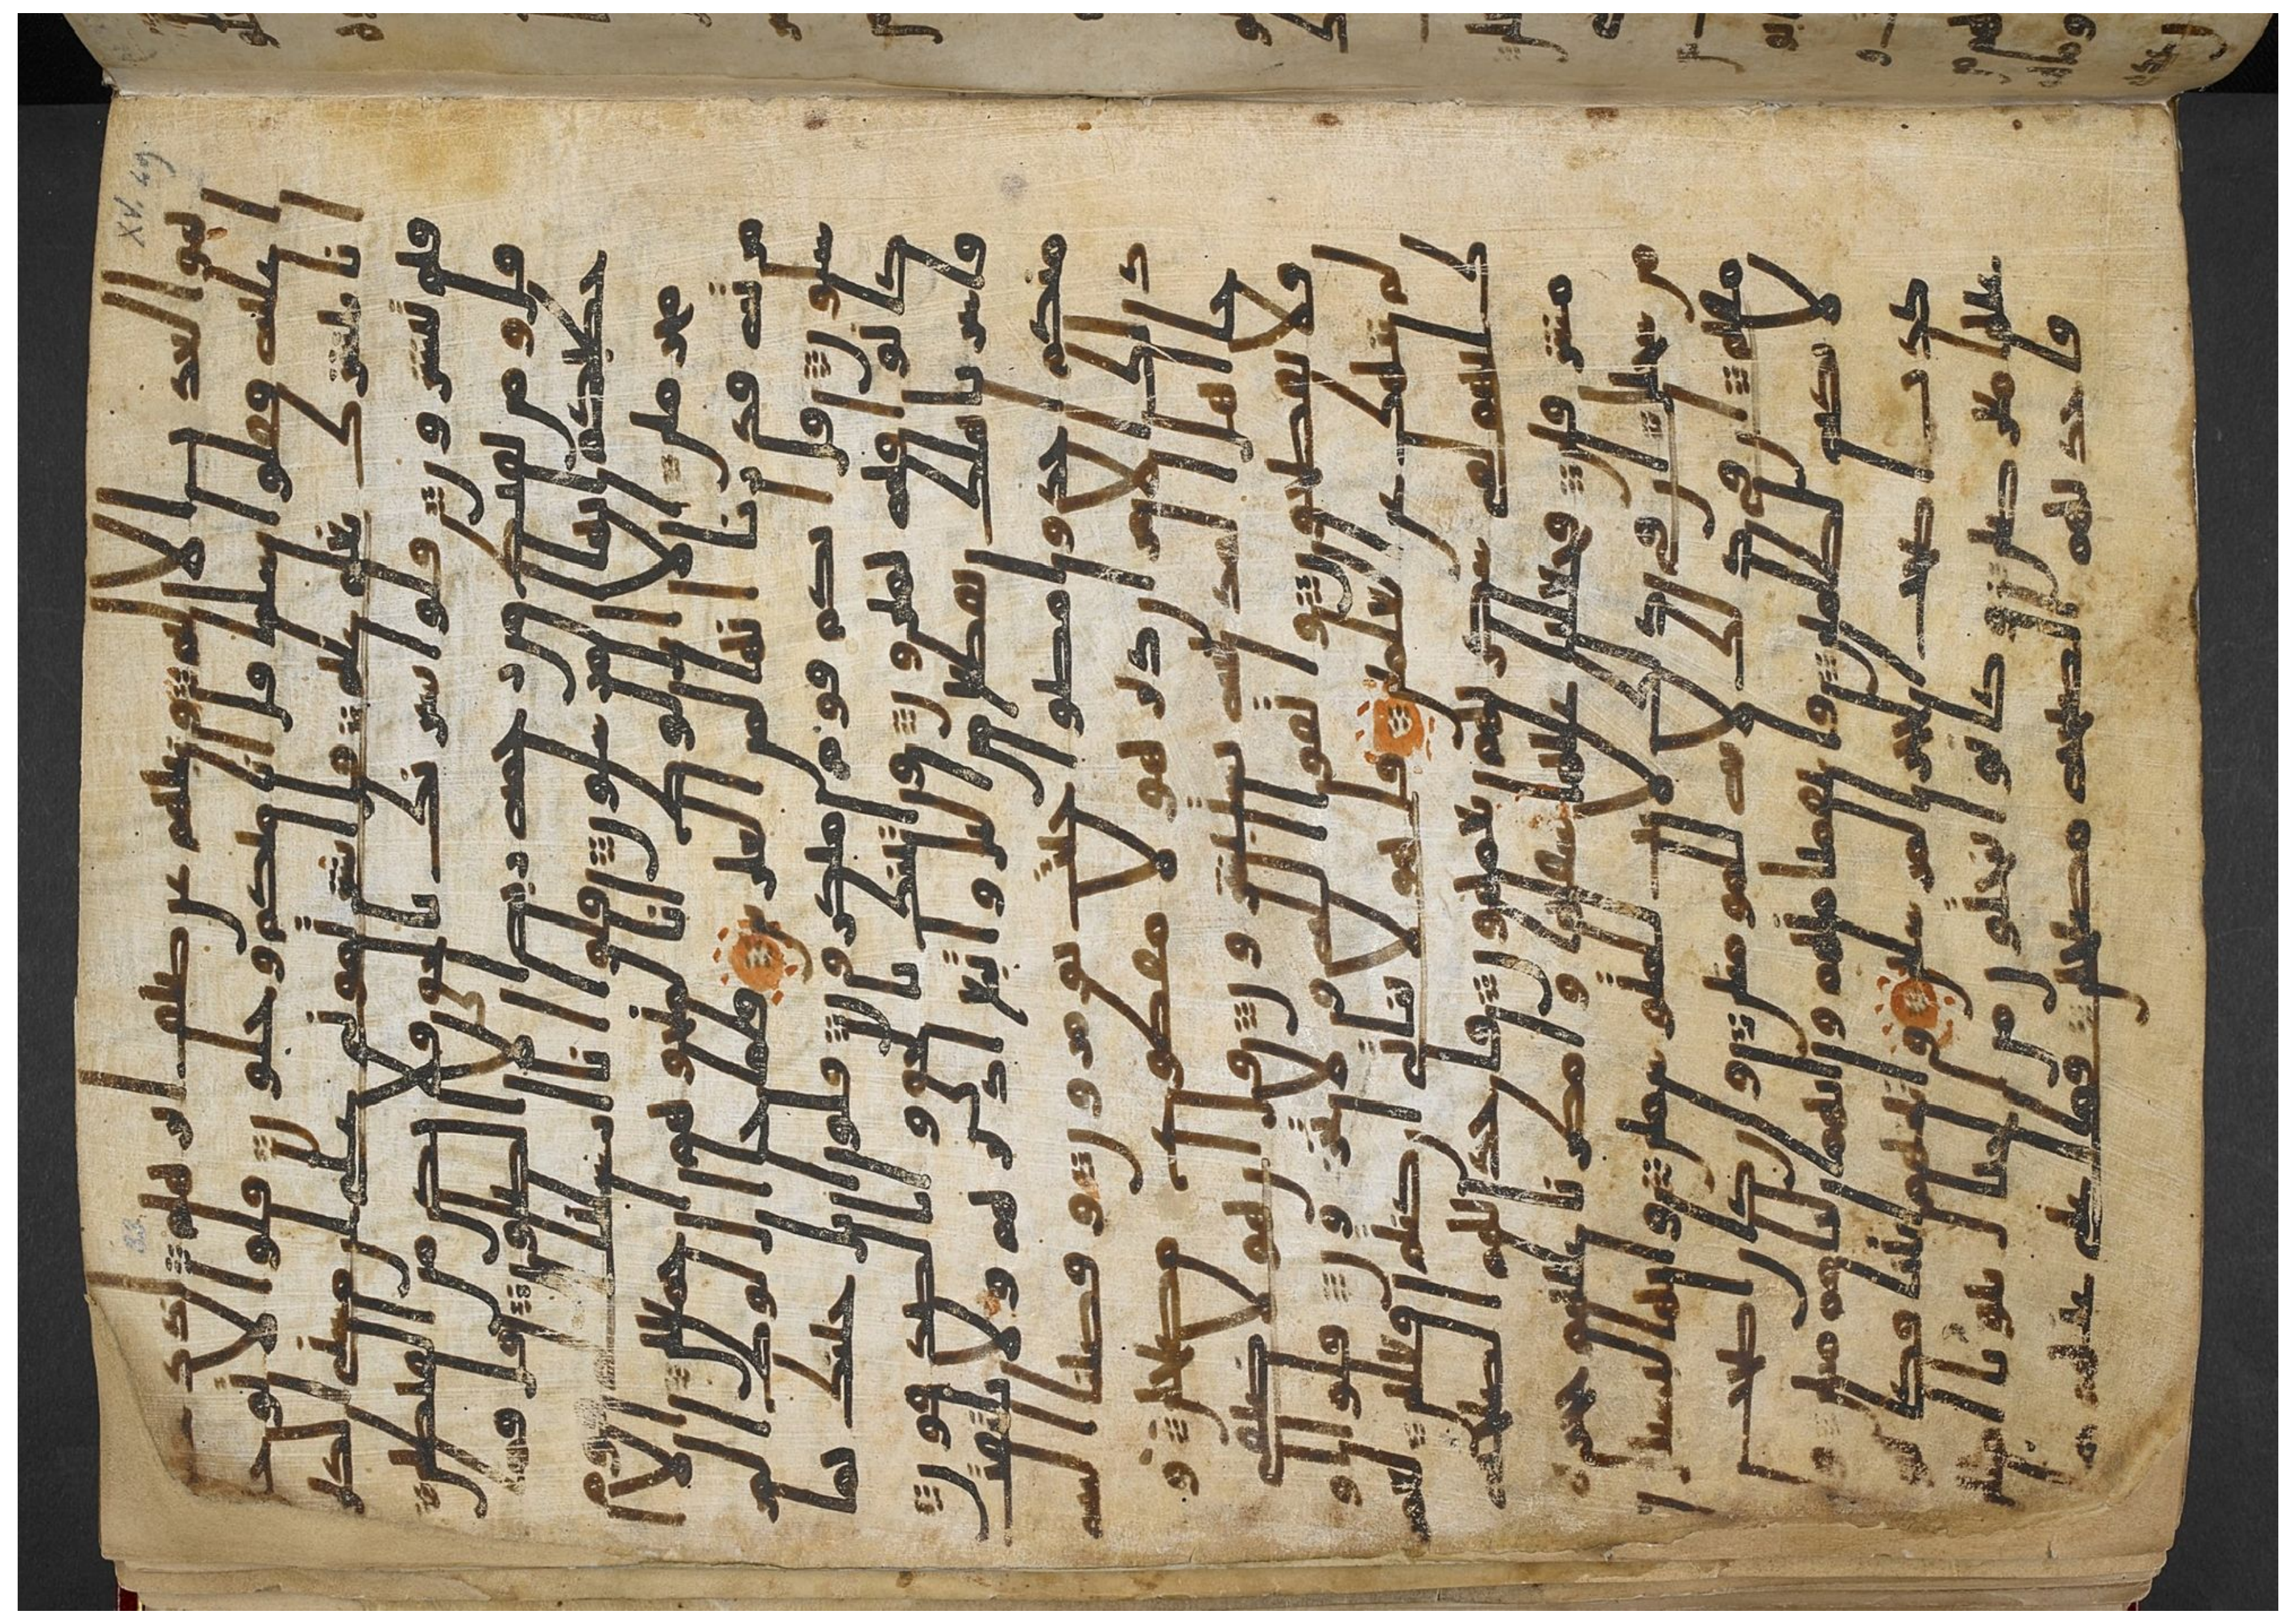 XV. 49
هو العذاب الاليم ونبئهم عن ضيف ابرهيم اذ د
خلوا عليه فقالوا سلما قال انا منكم وجلون قالوا لا توجل
انا نبشرك بغلم عليم قال ابشرتموني على ان مسني الكبر
فبم تبشرون قالوا بشرنك بالحق فلا تكن من القنطين
قال ومن يقنط من رحمة ربه الا الضالون قال فما
خطبكم ايها المرسلون قالوا انا ارسلنا الى قوم
مجرمين الا ال لوط انا لمنجوهم اجمعين الا ا
مرته قدرنا انها لمن الغبرين فلما جا ال لوط ا
لمرسلون قال انكم قوم منكرون قالوا بل جئنك بما
كانوا فيه يمترون واتينك بالحق وانا لصدقون
فاسر باهلك بقطع من اليل واتبع ادبرهم ولا يلتفت
منكم احد وامضوا حيث تومرون وقضينا اليه
ذلك الامر ان دابر هولا مقطوع مصبحين و
جا اهل المدينة يستبشرون قال ان هولا ضيفي
فلا تفضحون واتقوا الله ولا تخزون قالوا او
لم ننهك عن العلمين قال هولا بناتي ان كنتم فعلين لعمر
ك انهم لفي سكرتهم يعمهون فاخذتهم الصيحة
مشرقين فجعلنا عليها سافلها وامطرنا عليهم حجرة
من سجيل ان في ذلك لايت للمتوسمين وانها لبسبيل
مقيم ان في ذلك لاية للمومنين وان كان اصحب ا
لايكة لظلمين فانتقمنا منهم وانهما لبامم مبين و
لقد كذب اصحب الحجر المرسلين واتينهم ايتنا فكا
نوا عنها معرضين وكانوا ينحتون من الجبال بيوتا امنين
فاخذتهم الصيحة مصبحين فما اغنى عنهم ما